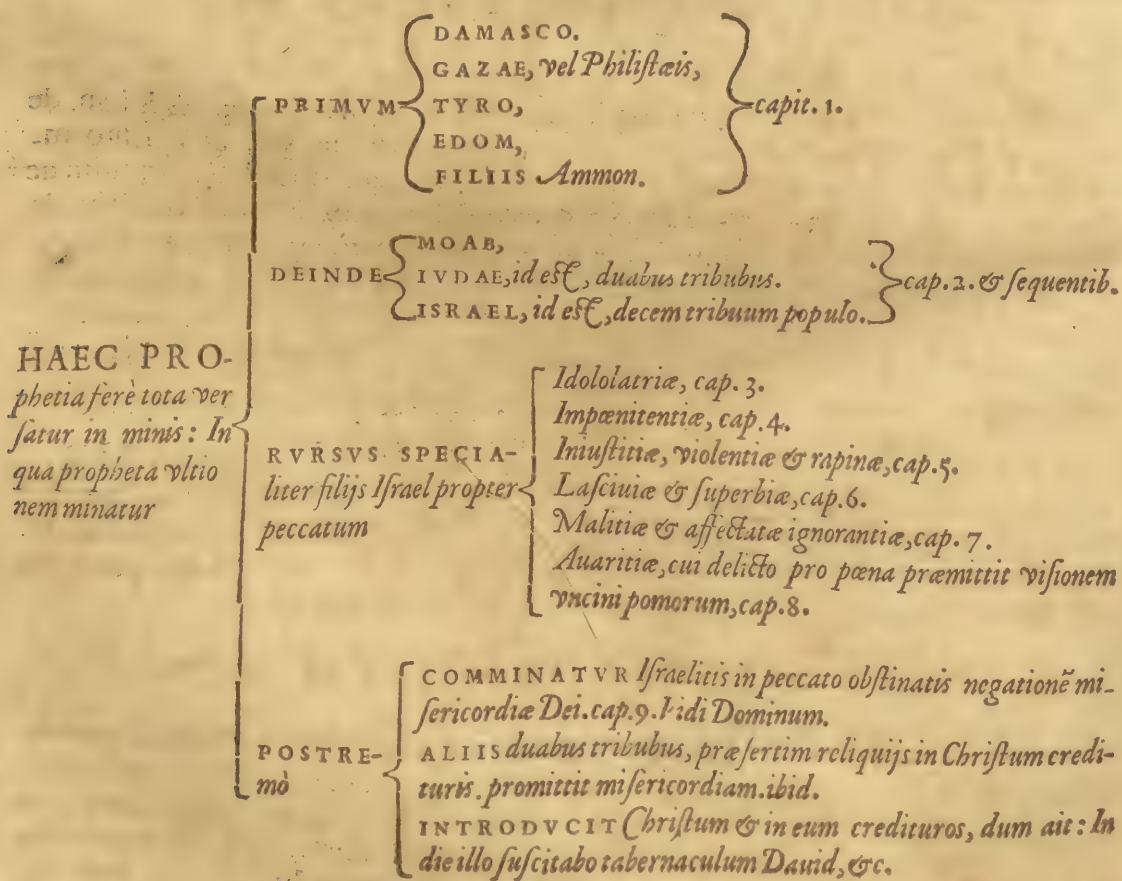 HAEC PRO-
phetia ferè tota ver
ſatur in minis: In
qua propheta vltio
nem minatur
PRIMVM
DAMASCO.
GAZAE, vel Philiſtæis,
TYRO,
EDOM,
FILIIS Ammon.
capit. 1.
DEINDE
MOAB,
IVDAE, id eſt, duabus tribubus.
ISRAEL, id eſt, decem tribuum populo.
cap. 2. & ſequentib.
RVRSVS SPECIA-
liter filijs Iſrael propter
peccatum
Idololatriæ, cap. 3.
Impœnitentiæ, cap. 4.
Iniuſtitiæ, violentiæ & rapinæ, cap. 5.
Laſciuiæ & ſuperbiæ, cap. 6.
Malitiæ & affectatæ ignorantiæ, cap. 7.
Auaritiæ, cui delicto pro pœna præmittit viſionem
vncini pomorum, cap. 8.
POSTRE-
mò
COMMINATVR Iſraelitis in peccato obſtinatis negationẽ mi-
ſericordiæ Dei. cap. 9. Vidi Dominum.
ALIIS duabus tribubus, præſertim reliquijs in Chriſtum credi-
turis. promittit miſericordiam. ibid.
INTRODVCIT Chriſtum & in eum credituros, dum ait: In
die illo ſuſcitabo tabernaculum Dauid, &c.